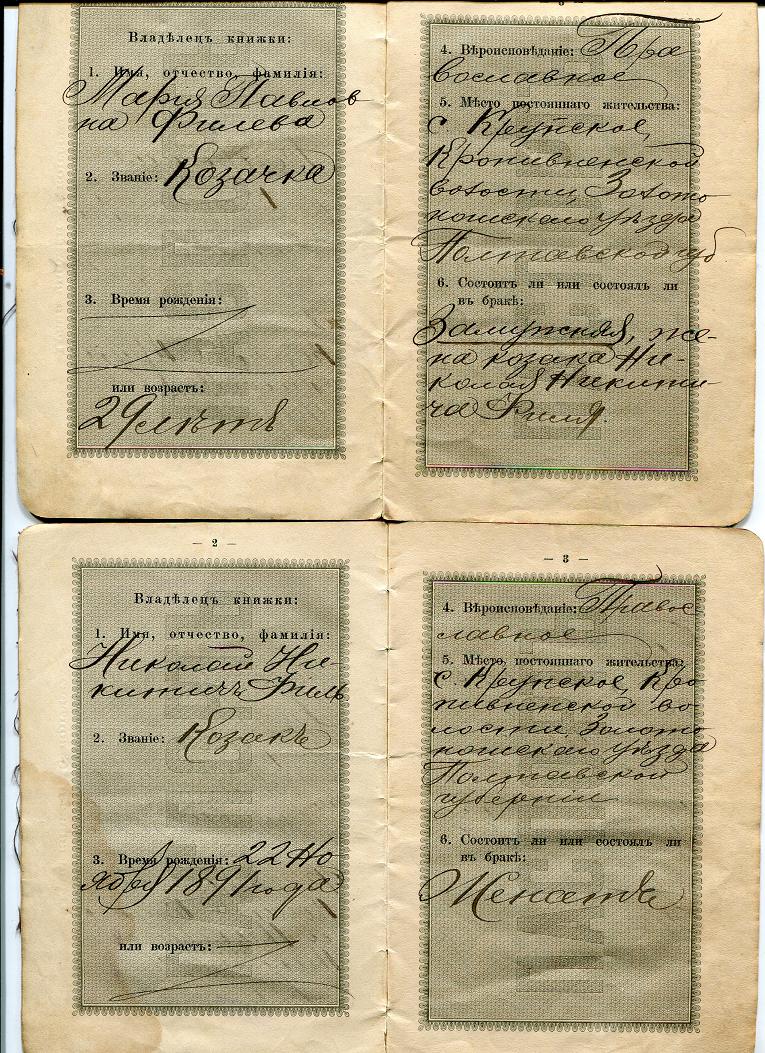 Владѣлецъ книжки:
1. Имя, отчество, фамилія:
Марія Павлов
на Филева
2. Званіе: Козачка
3. Время рожденія:
или возрастъ:
29 лѣтъ
3
4. Вѣроисповѣданіе: Пра
вославное
5. Мѣсто постояннаго жительства:
с. Крупское,
Кропивненской
волости, Золото
ношскаго уѣзда
Полтавской губ.
6. Состоитъ ли или состоялъ ли
въ бракѣ:
Замужняя, же-
на козака Ни-
колая Никити-
ча Филя.
— 2 —
Владѣлецъ книжки:
1. Имя, отчество, фамилія:
Николай Ни-
китичъ Филь
2. Званіе: Козакъ
3. Время рожденія: 22 Но
ября 1891 года
или возрастъ:
— 3 —
4. Вѣроисповѣданіе: Правос
лавное
5. Мѣсто постояннаго жительства:
с. Крупское, Кро
пивненской во
лости, Золото
ношскаго уѣзда
Полтавской
губерніи
6. Состоитъ ли или состоялъ ли
въ бракѣ:
Женатъ